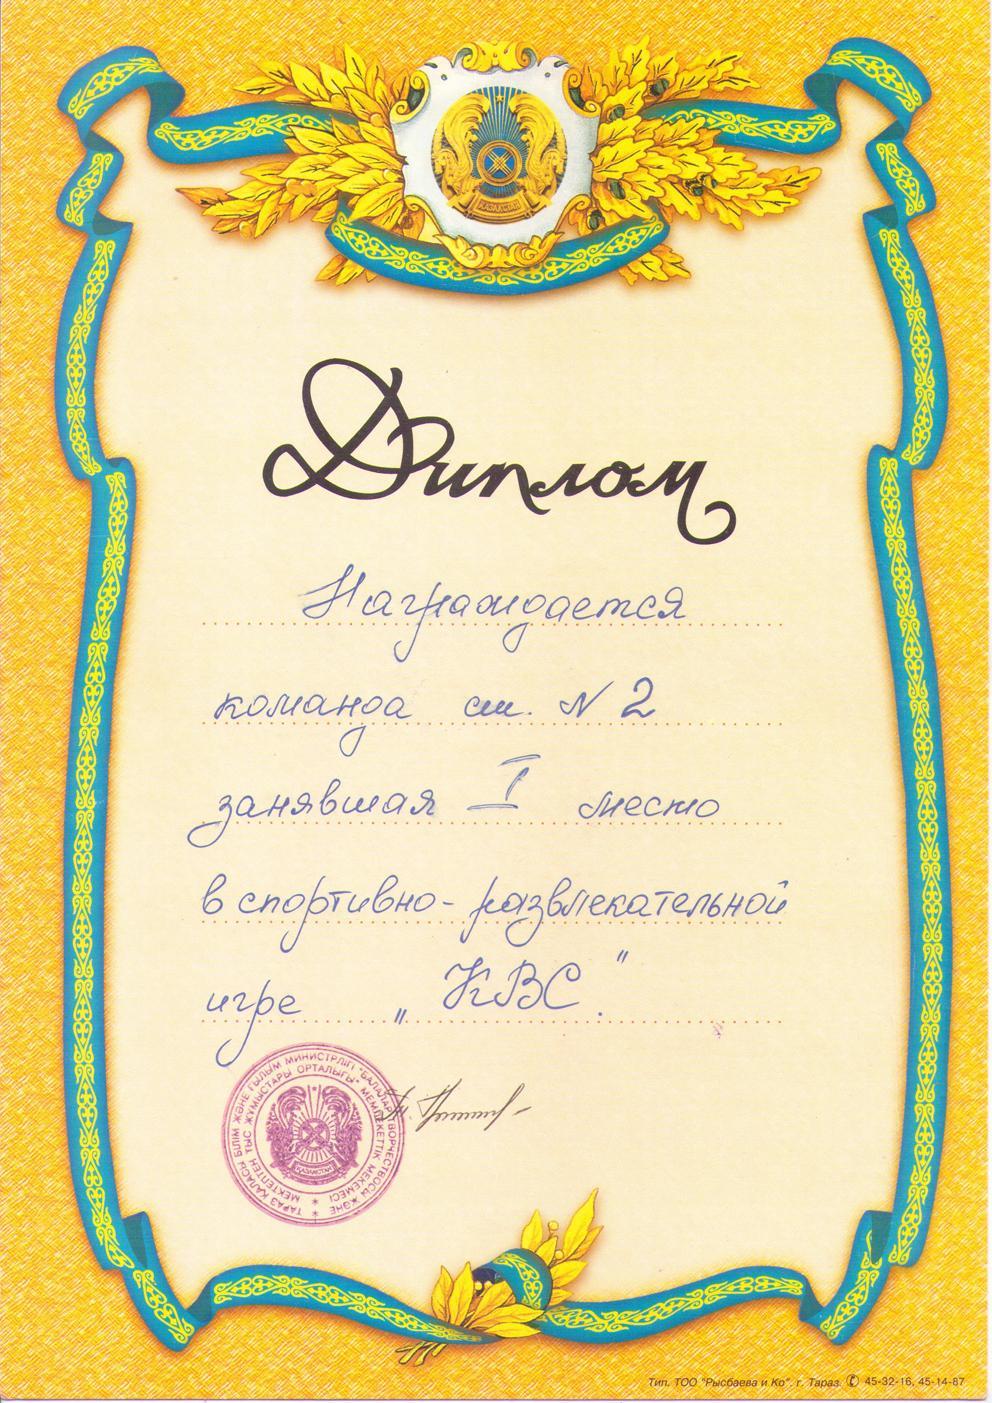 ҚАЗАҚСТАН
Диплом
Награждается
команда сш. N 2
занявшая I место
в спортивно-развлекательной
игре „КВС."
ТАРАЗ ҚАЛАСЫ БІЛІМ ЖӘНЕ ҒЫЛЫМ МИНИСТРЛІГІ "БАЛАЛАР ТВОРЧЕСТВОСЫ ЖӘНЕ
МЕКТЕПТЕН ТЫС ЖҰМЫСТАРЫ ОРТАЛЫҒЫ" МЕМЛЕКЕТТІК МЕКЕМЕСІ
ҚАЗАҚСТАН
Тип. ТОО "Рысбаева и Ко". г. Тараз. ✆ 45-32-16, 45-14-87